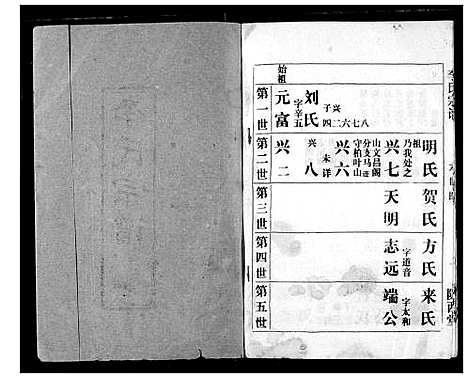 李氏宗谱
始祖
第一世
元富
字辛五
刘氏
子兴
四二六七八
第二世
兴二
兴八
未详
兴六
守柏叶山
分支马迹
山文昌阁
兴七
乃我处之
祖
明氏
第三世
天明
贺氏
第四世
志远
字道音
方氏
第五世
端公
字太和
来氏
陇西堂